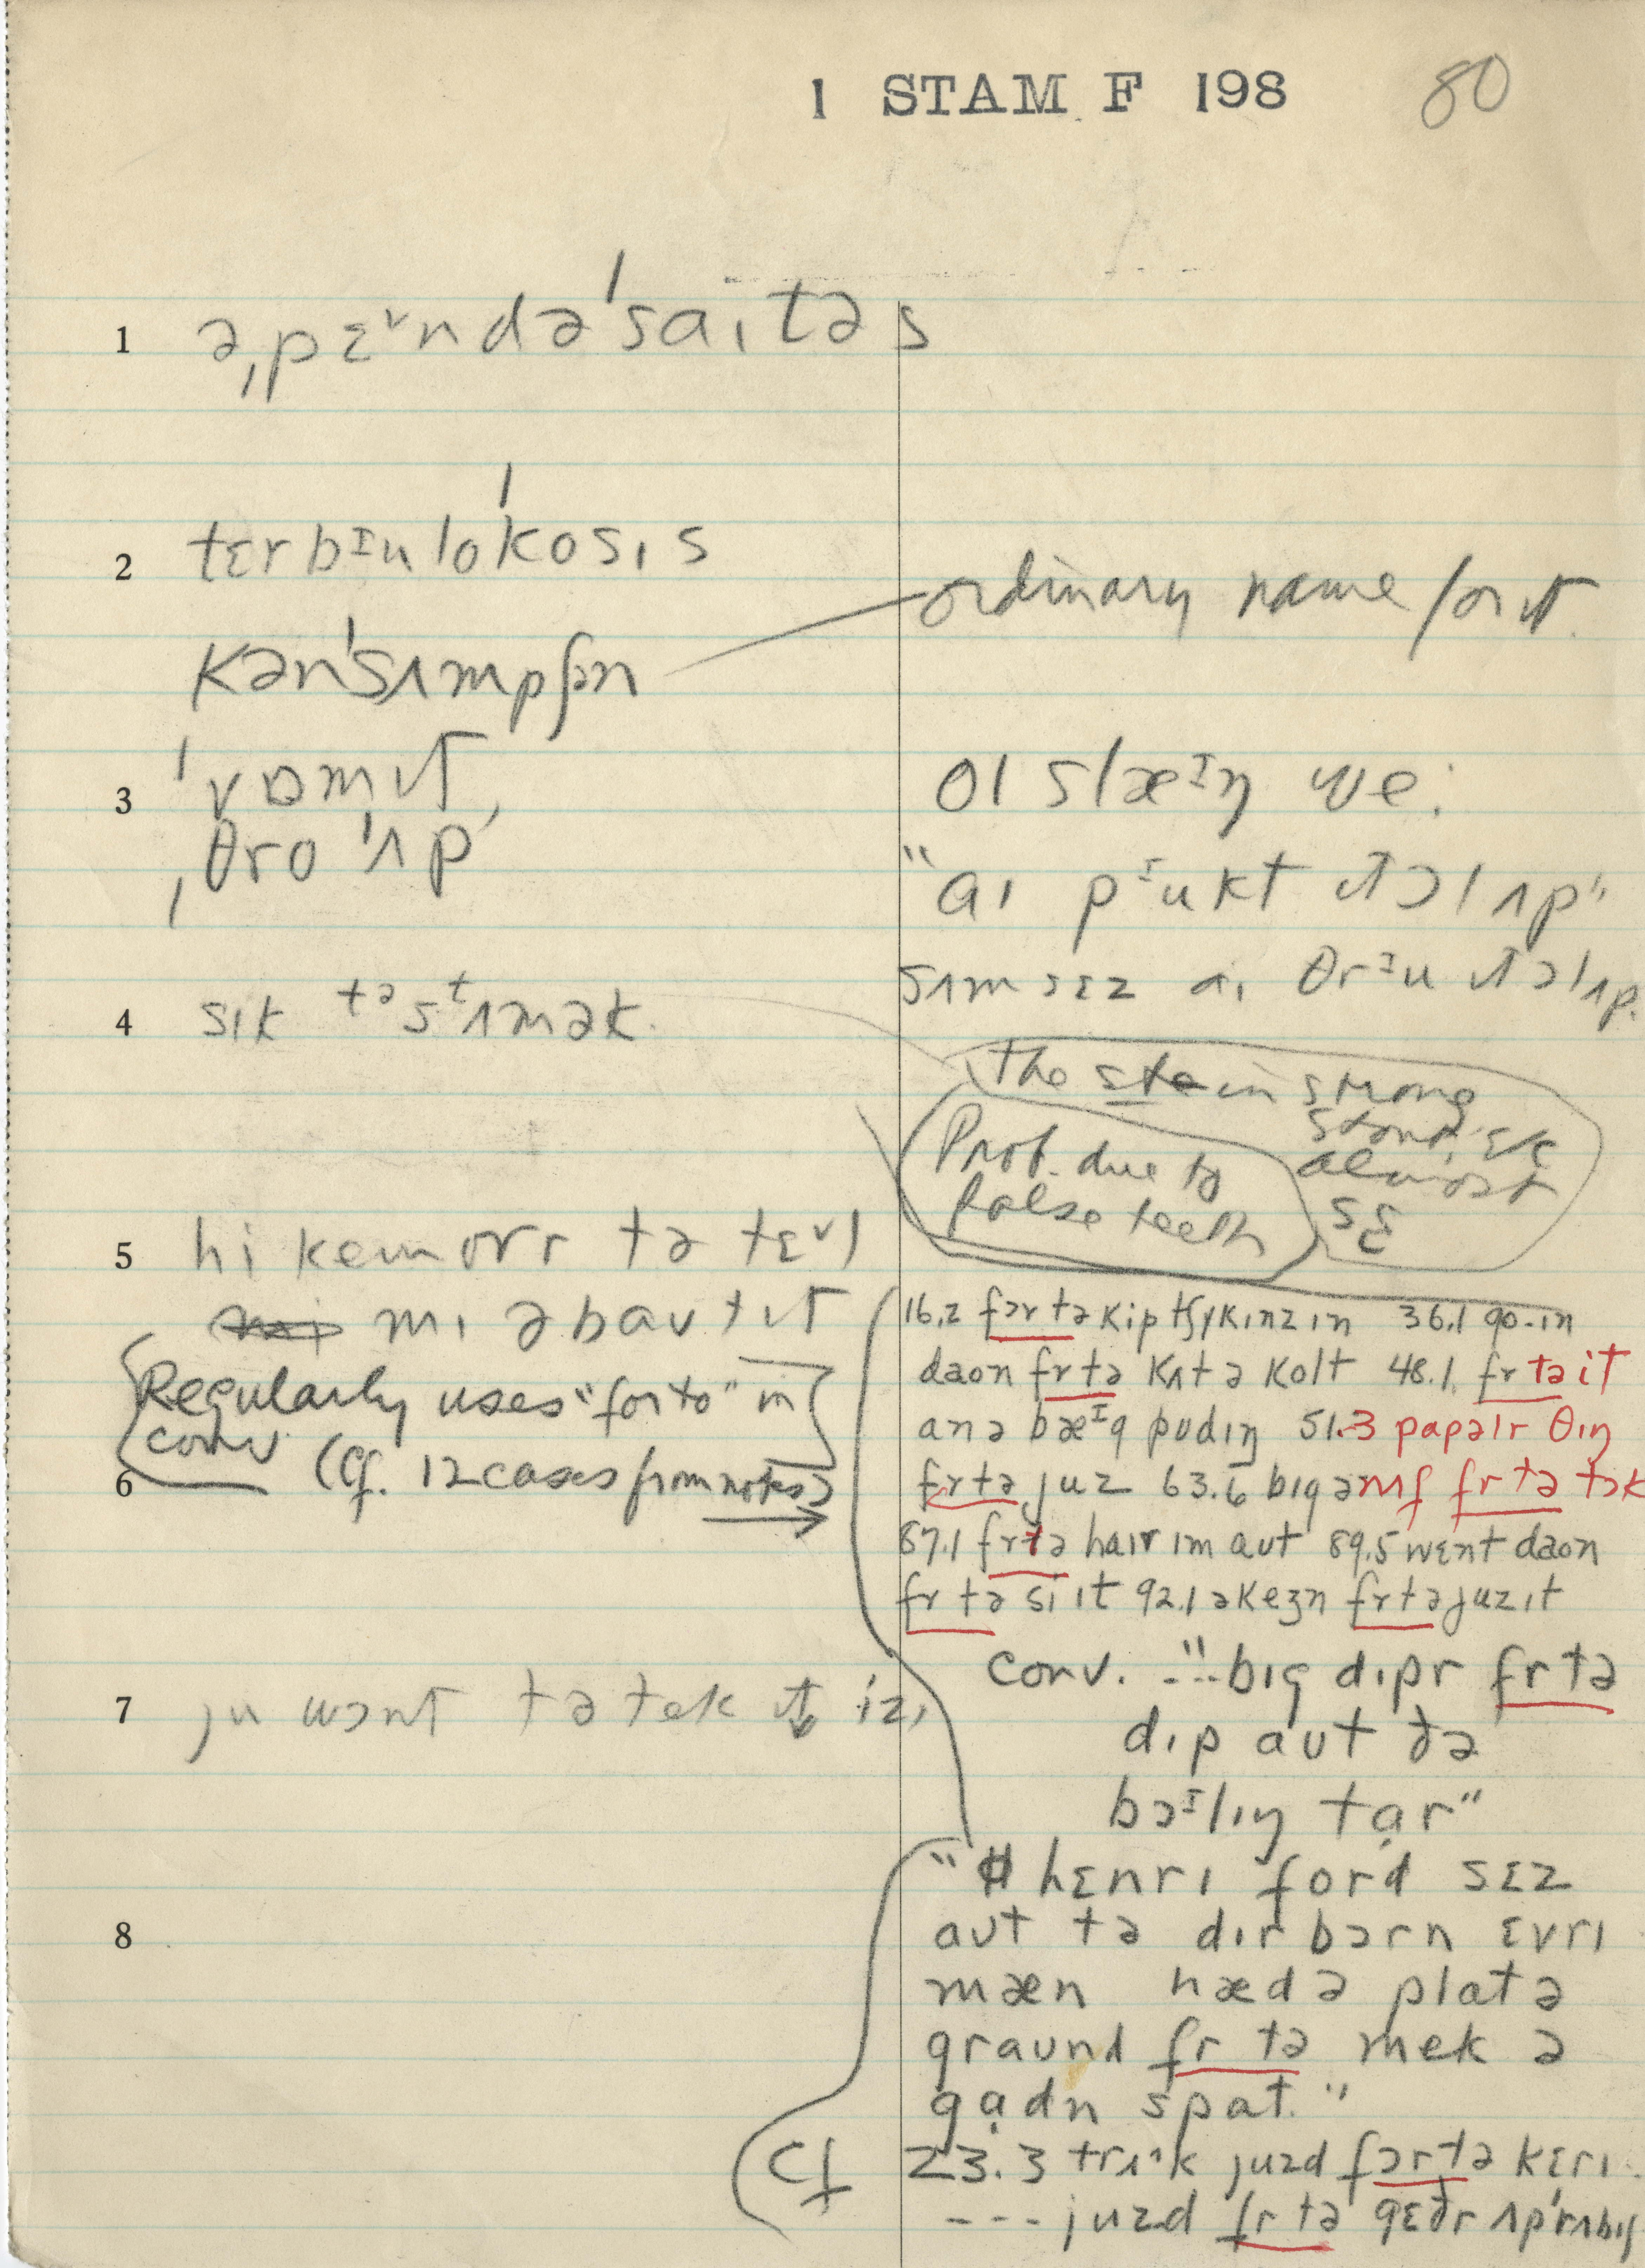 1 STAM F 198 80
1 əˌpɛ˅ndəˈsaɪtəs
2 tɛrbᶦuloˈkosɪs
ordinary name for it.
kənˈsʌmpʃən
3 ˈvɒmɪt,
ol slæᶦŋ we:
ˌθro ˈʌp
"aɪ pᶦukt ɪt ɔl ʌp"
sʌm sɛz aɪ θrᶦu ɪt ɔl ʌp.
4 sɪk tə sᵗʌmək.
The st in strong
stand, etc
almost
Prob. due to
false teeth
5 hi kem ovr tə tɛ˅l
mɪ əbaut ɪt
Regularly uses "for to" in
conv. (Cf. 12 cases from notes)
6
16.2 fərtə kip tʃɪkɪnz ɪn 36.1 go-ɪn
daon frtə kʌt ə kolt 48.1. frtə it
an ə bæᶦg pudɪŋ 51.3 papəlr θɪŋ
frtə juz 63.6 bɪg ənf frtə tɔk
87.1 frtə haɪr ɪm aut 89.5 wɛnt daon
frtə si ɪt 92.1 əkeʒn frtə juz ɪt
conv. --- "bɪg dɪpr frtə
dɪp aut ðə
bɔᶦlɪŋ tar"
7 ju wɔnt tə tek ɪt izɪ
"hɛnrɪ ford sɛz
8
aut tə dɪrbɔrn ɛvrɪ
mæn hæd ə plat ə
graund fr tə mek ə
gadn spat."
Cf 23.3 trʌk juzd fərtə kɛrɪ
--- juzd fr tə gɛðr ʌp rʌbɪʃ